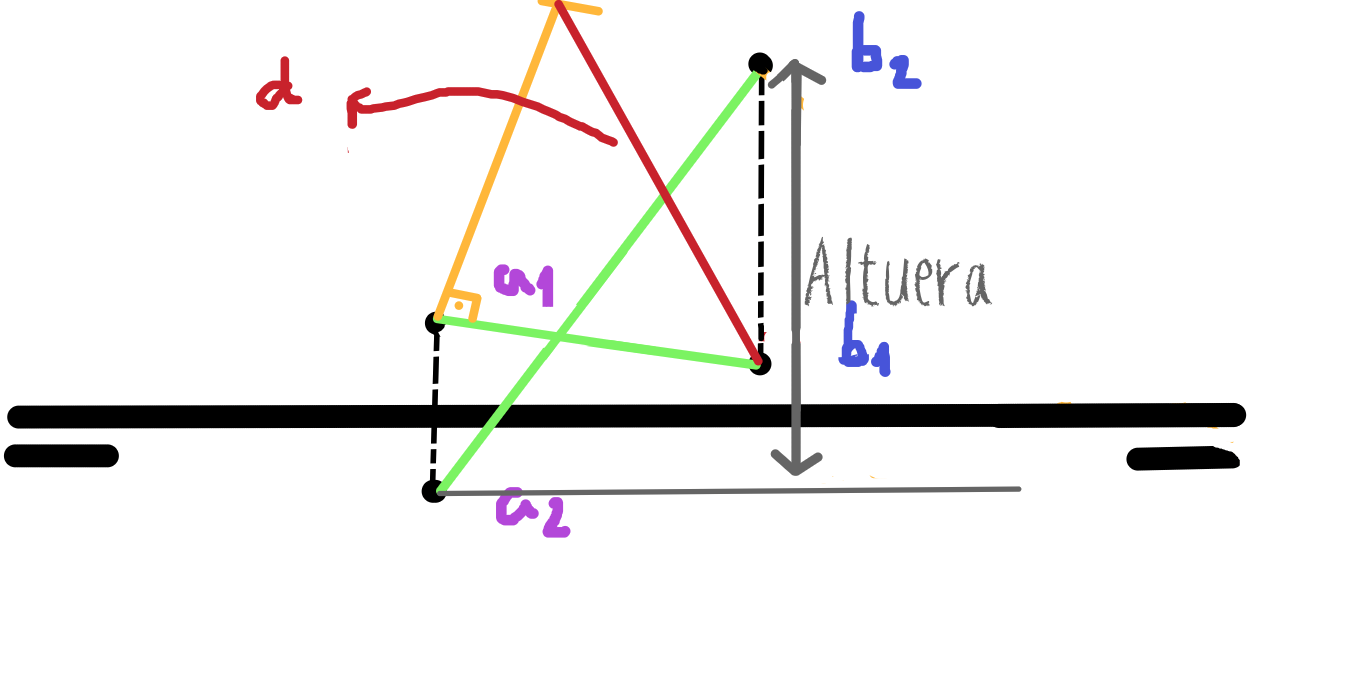 b2
d
a1
Altuera
b1
a2